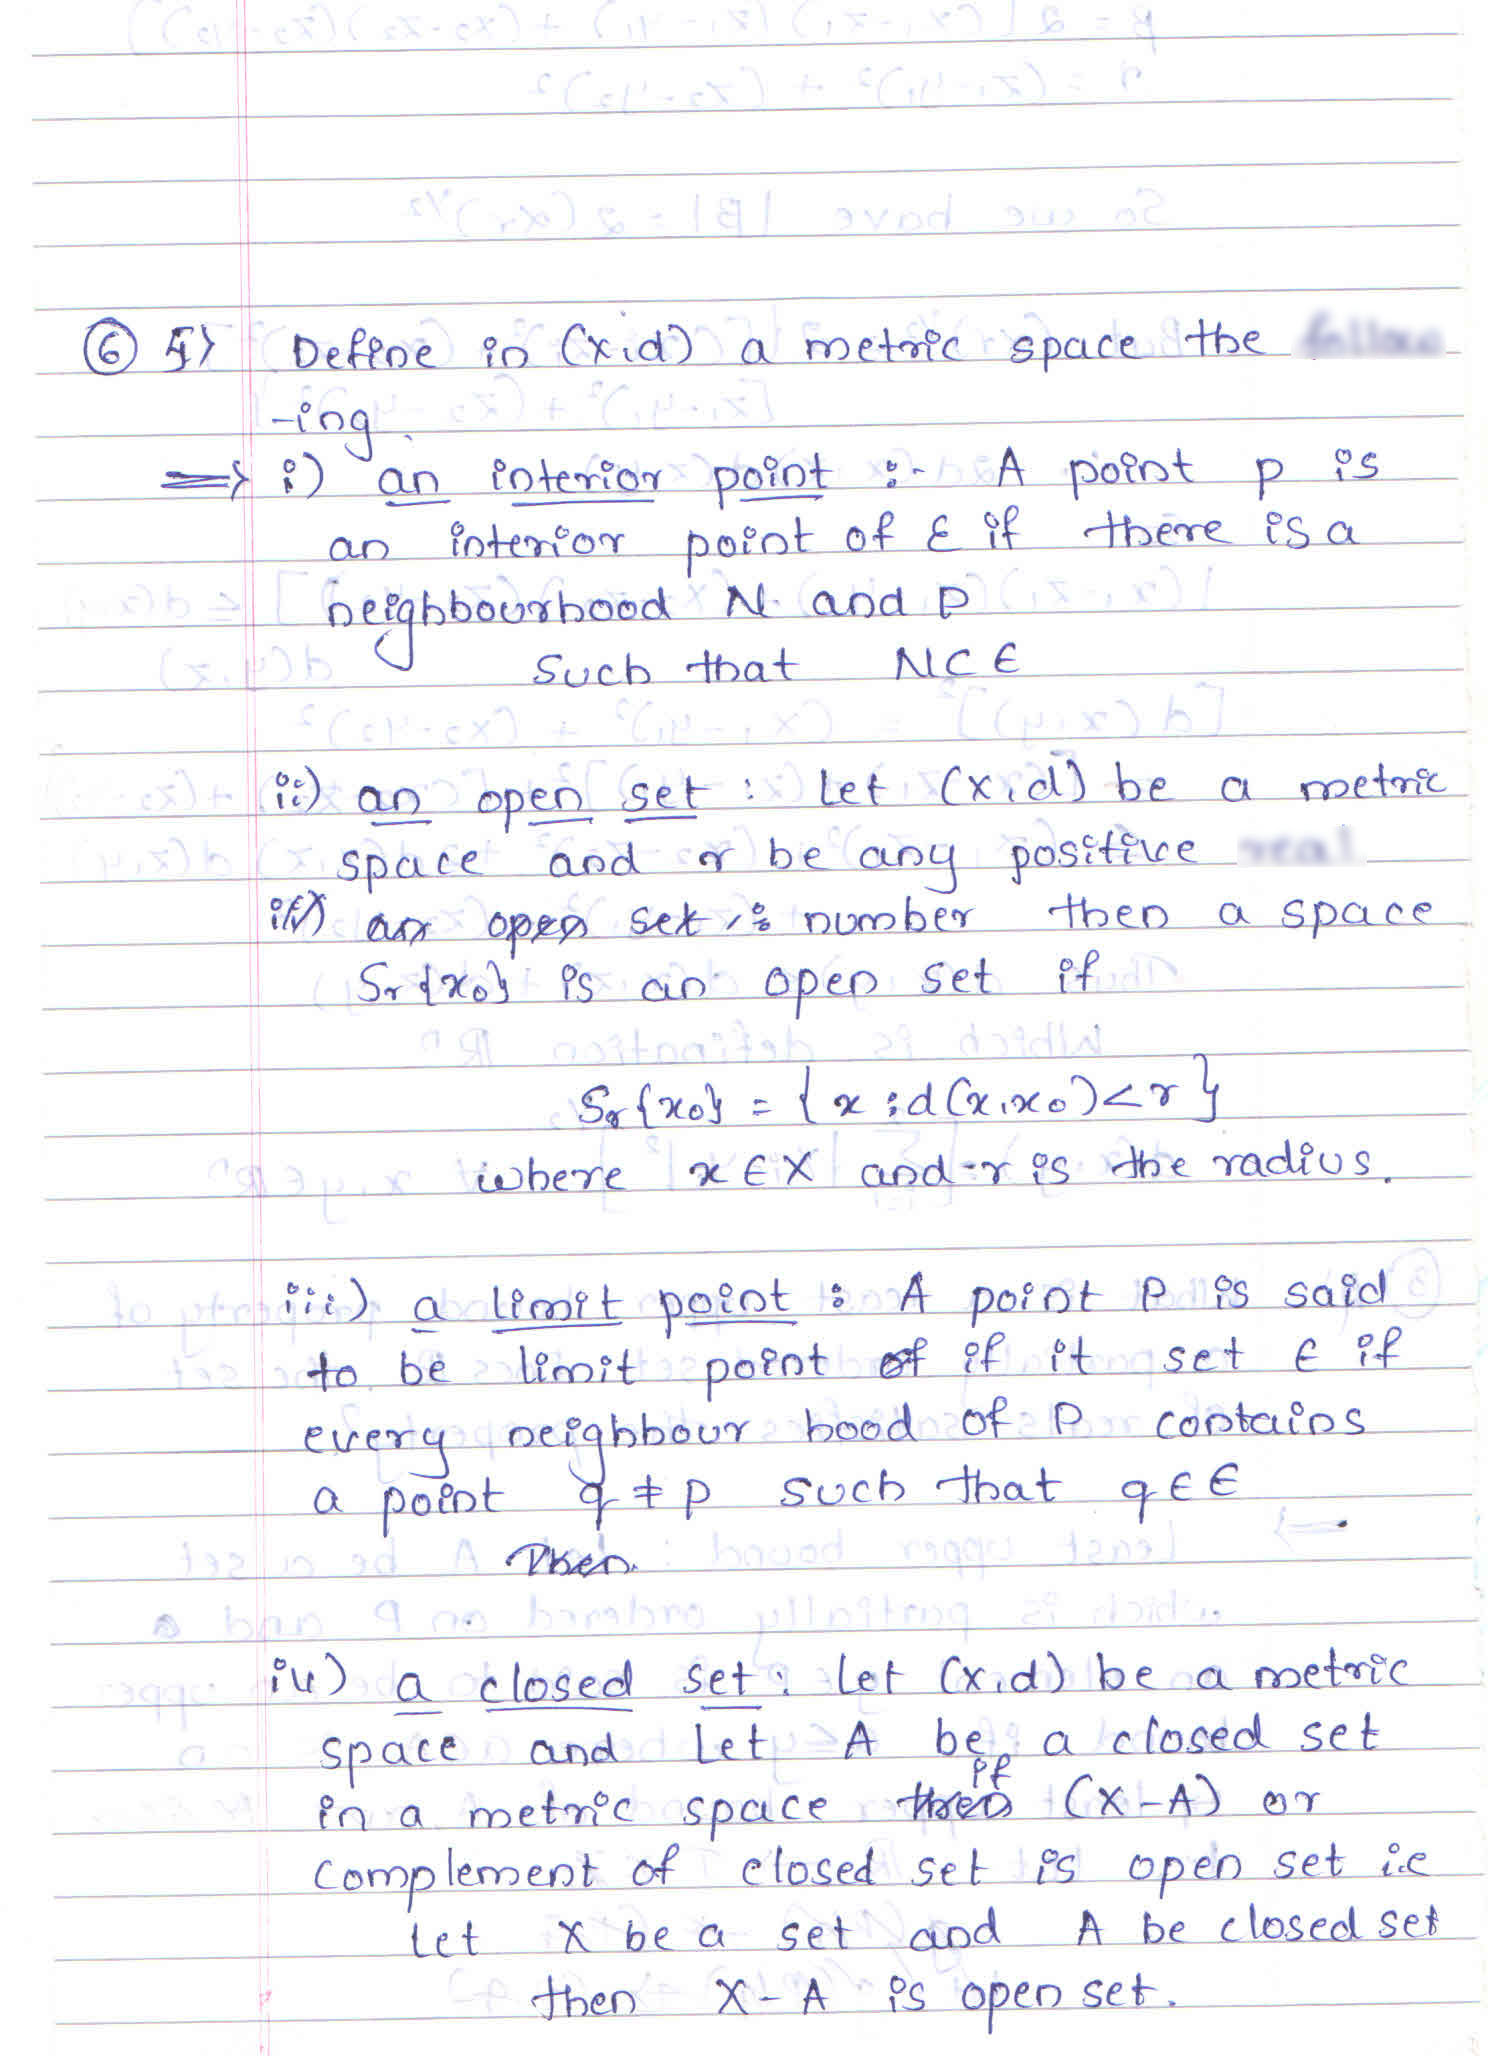 ⑥ 5) Define in (X,d) a metric space the
-ing.
⇒ i) an interior point :- A point p is
an interior point of E if there is a
neighbourhood N. and p
such that N⊂E
ii) an open set : Let (X,d) be a metric
space and r be any positive
iii) an open set : number then a space
Sr{x0} is an open set if
Sr{x0} = { x : d(x,x0) < r }
where x ∈ X and r is the radius.
iii) a limit point : A point P is said
to be limit point of if it set E if
every neighbour hood of P contains
a point q ≠ p such that q ∈ E
Then.
iv) a closed set : Let (X,d) be a metric
space and Let A be a closed set
if
in a metric space then (X-A) or
complement of closed set is open set i.e
Let X be a set and A be closed set
then X-A is open set.